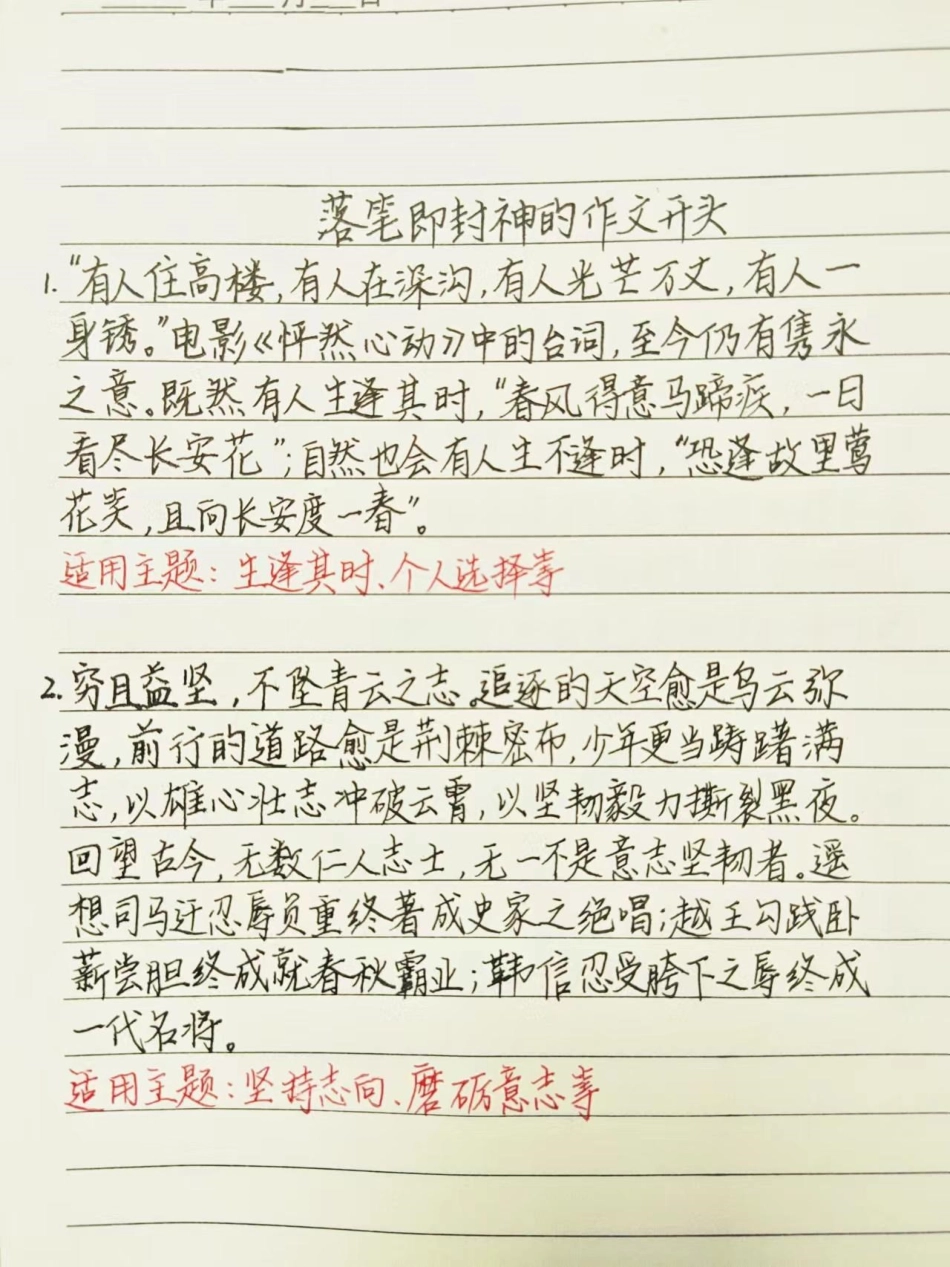 年 月 日
落笔即封神的作文开头
1.“有人住高楼,有人在深沟,有人光芒万丈,有人一
身锈。”电影《怦然心动》中的台词,至今仍有隽永
之意。既然有人生逢其时,“春风得意马蹄疾,一日
看尽长安花”;自然也会有人生不逢时,“恐逢故里莺
花笑,且向长安度一春”。
适用主题:生逢其时、个人选择等
2.穷且益坚,不坠青云之志。追逐的天空愈是乌云弥
漫,前行的道路愈是荆棘密布,少年更当踌躇满
志,以雄心壮志冲破云霄,以坚韧毅力撕裂黑夜。
回望古今,无数仁人志士,无一不是意志坚韧者。遥
想司马迁忍辱负重终著成史家之绝唱;越王勾践卧
薪尝胆终成就春秋霸业;韩信忍受胯下之辱终成
一代名将。
适用主题:坚持志向、磨砺意志等